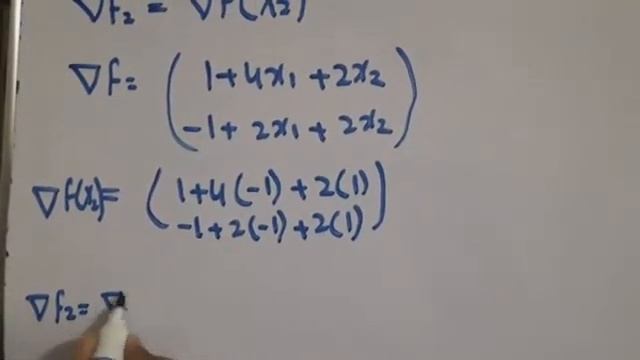 ∇f₂ = ∇f(x₂)
∇f = ( 1+4x₁ +2x₂
-1+ 2x₁ + 2x₂ )
∇f(x₂)= ( 1+4(-1) +2(1)
-1+2(-1)+2(1) )
∇f₂= ∇